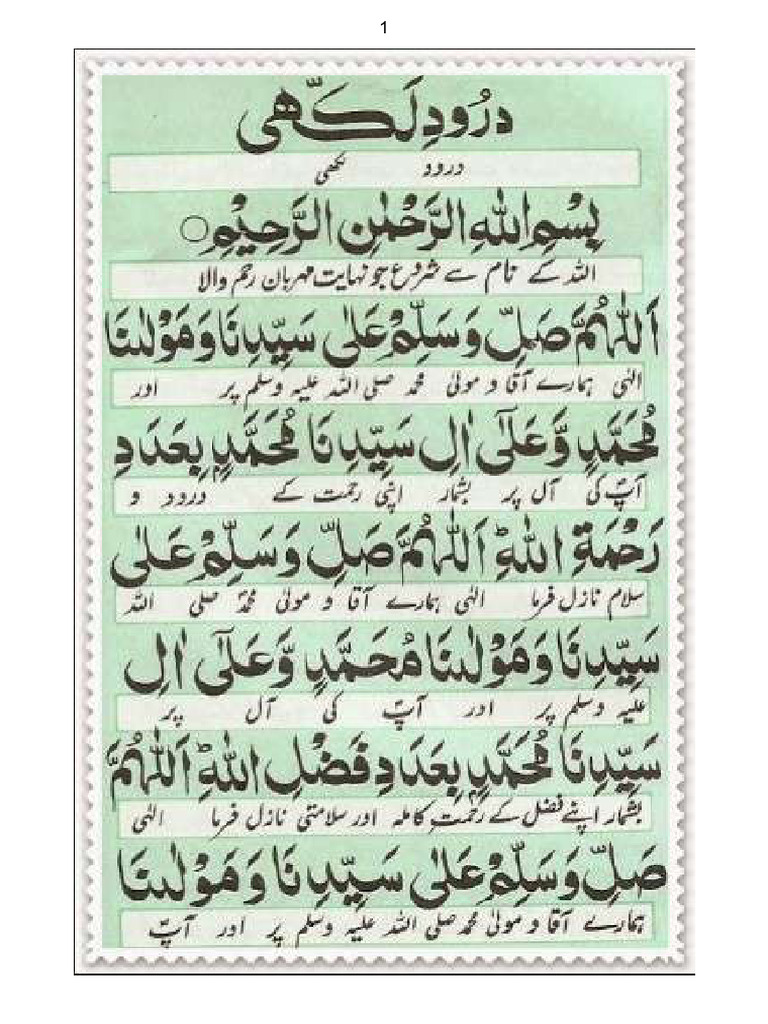 1
درُودِ لَکّھی
درود لکھی
بِسْمِ اللهِ الرَّحْمٰنِ الرَّحِيْمِ ○
اللہ کے نام سے شروع جو نہایت مہربان رحم والا
اَللّٰهُمَّ صَلِّ وَسَلِّمْ عَلٰى سَيِّدِنَا وَمَوْلٰىنَا
الٰہی ہمارے آقا و مولیٰ محمد صلی اللہ علیہ وسلم پر اور
مُحَمَّدٍ وَّعَلٰٓى اٰلِ سَيِّدِنَا مُحَمَّدٍۢ بِعَدَدِ
آپؐ کی آل پر بشمار اپنی رحمت کے درود و
رَحْمَةِ اللهِؕ اَللّٰهُمَّ صَلِّ وَسَلِّمْ عَلٰى
سلام نازل فرما الٰہی ہمارے آقا و مولیٰ محمدؐ صلی اللہ
سَيِّدِنَا وَمَوْلٰىنَا مُحَمَّدٍ وَّعَلٰٓى اٰلِ
علیہ وسلم پر اور آپؐ کی آل پر
سَيِّدِنَا مُحَمَّدٍۢ بِعَدَدِ فَضْلِ اللهِؕ اَللّٰهُمَّ
بشمار اپنے فضل کے رحمتِ کاملہ اور سلامتی نازل فرما الٰہی
صَلِّ وَسَلِّمْ عَلٰى سَيِّدِنَا وَمَوْلٰىنَا
ہمارے آقا و مولیٰ محمد صلی اللہ علیہ وسلم پر اور آپؐ